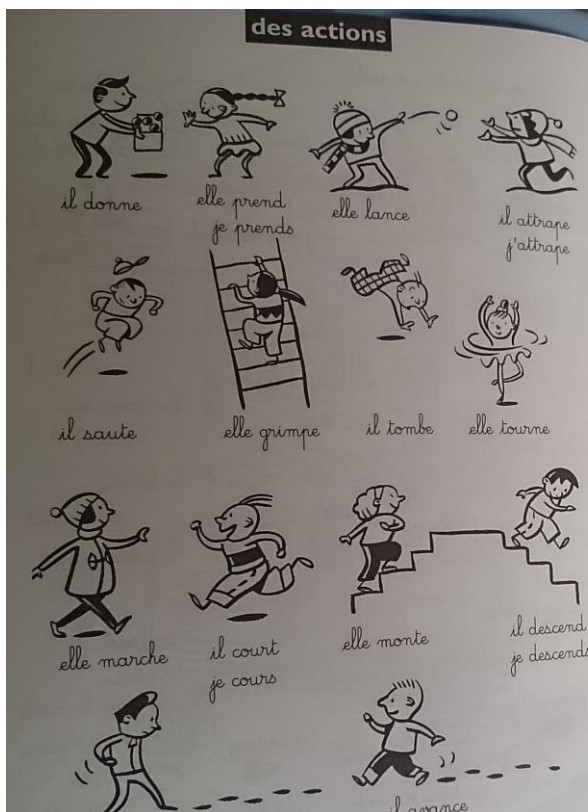 des actions
il donne
elle prend
je prends
elle lance
il attrape
j'attrape
il saute
elle grimpe
il tombe
elle tourne
elle marche
il court
je cours
elle monte
il descend
je descends
il avance